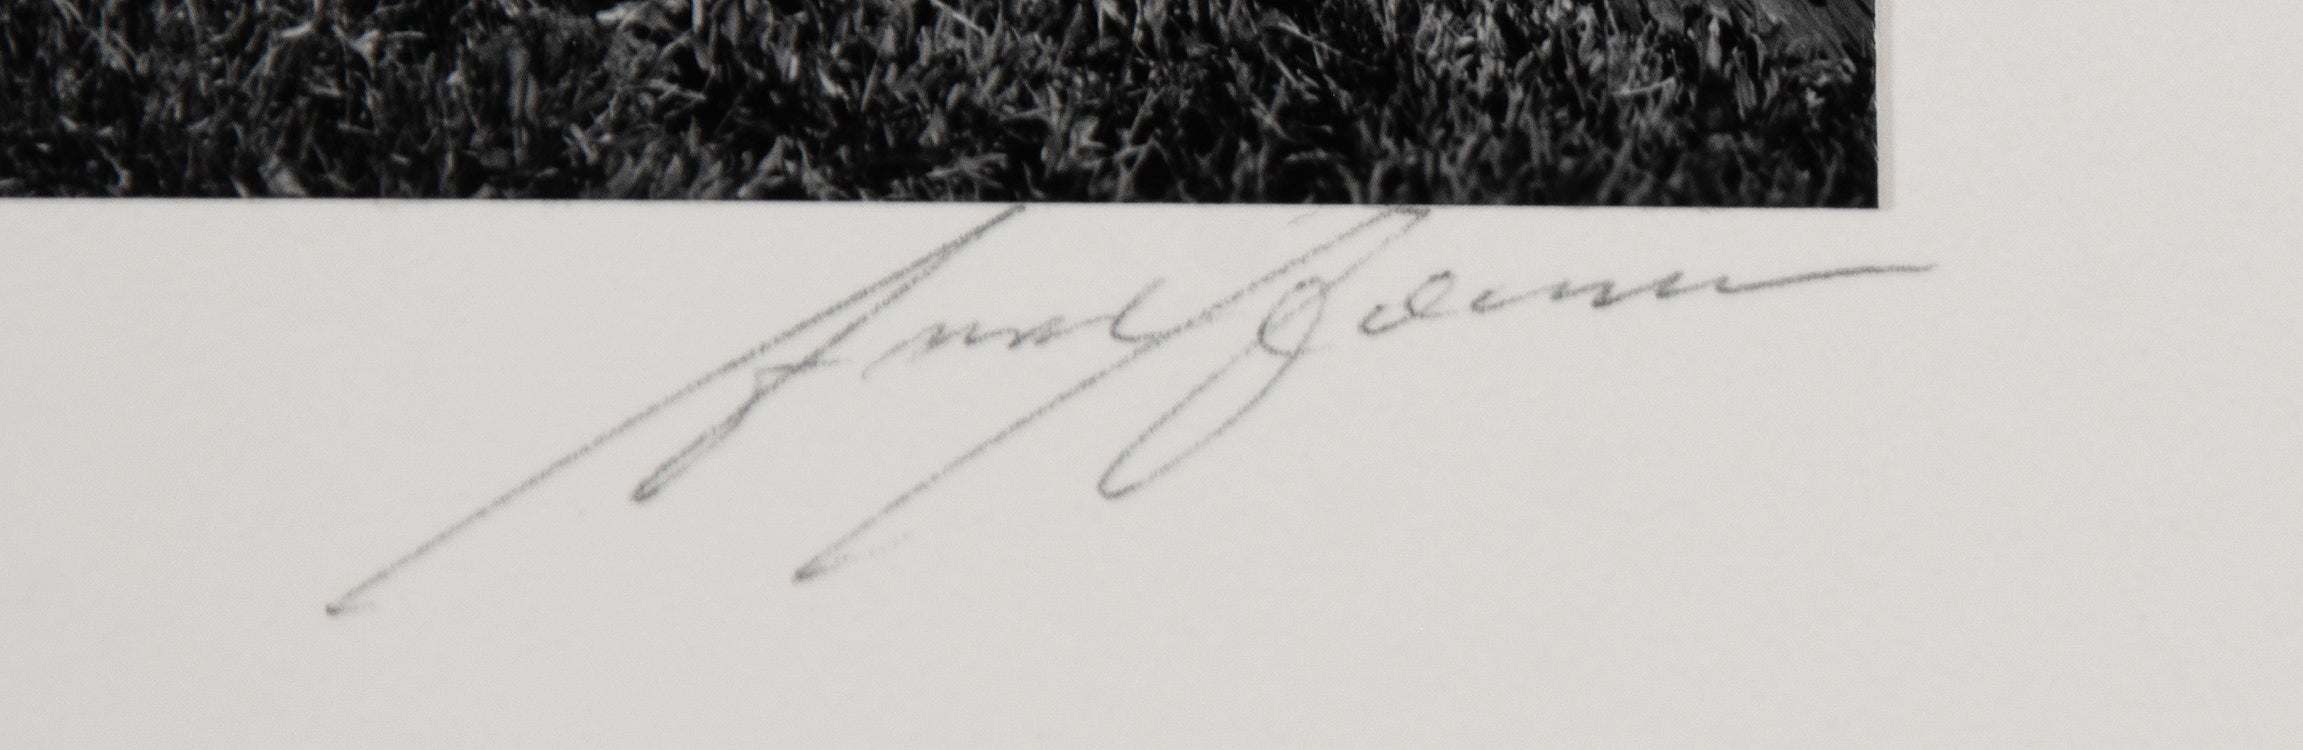 Ansel Adams